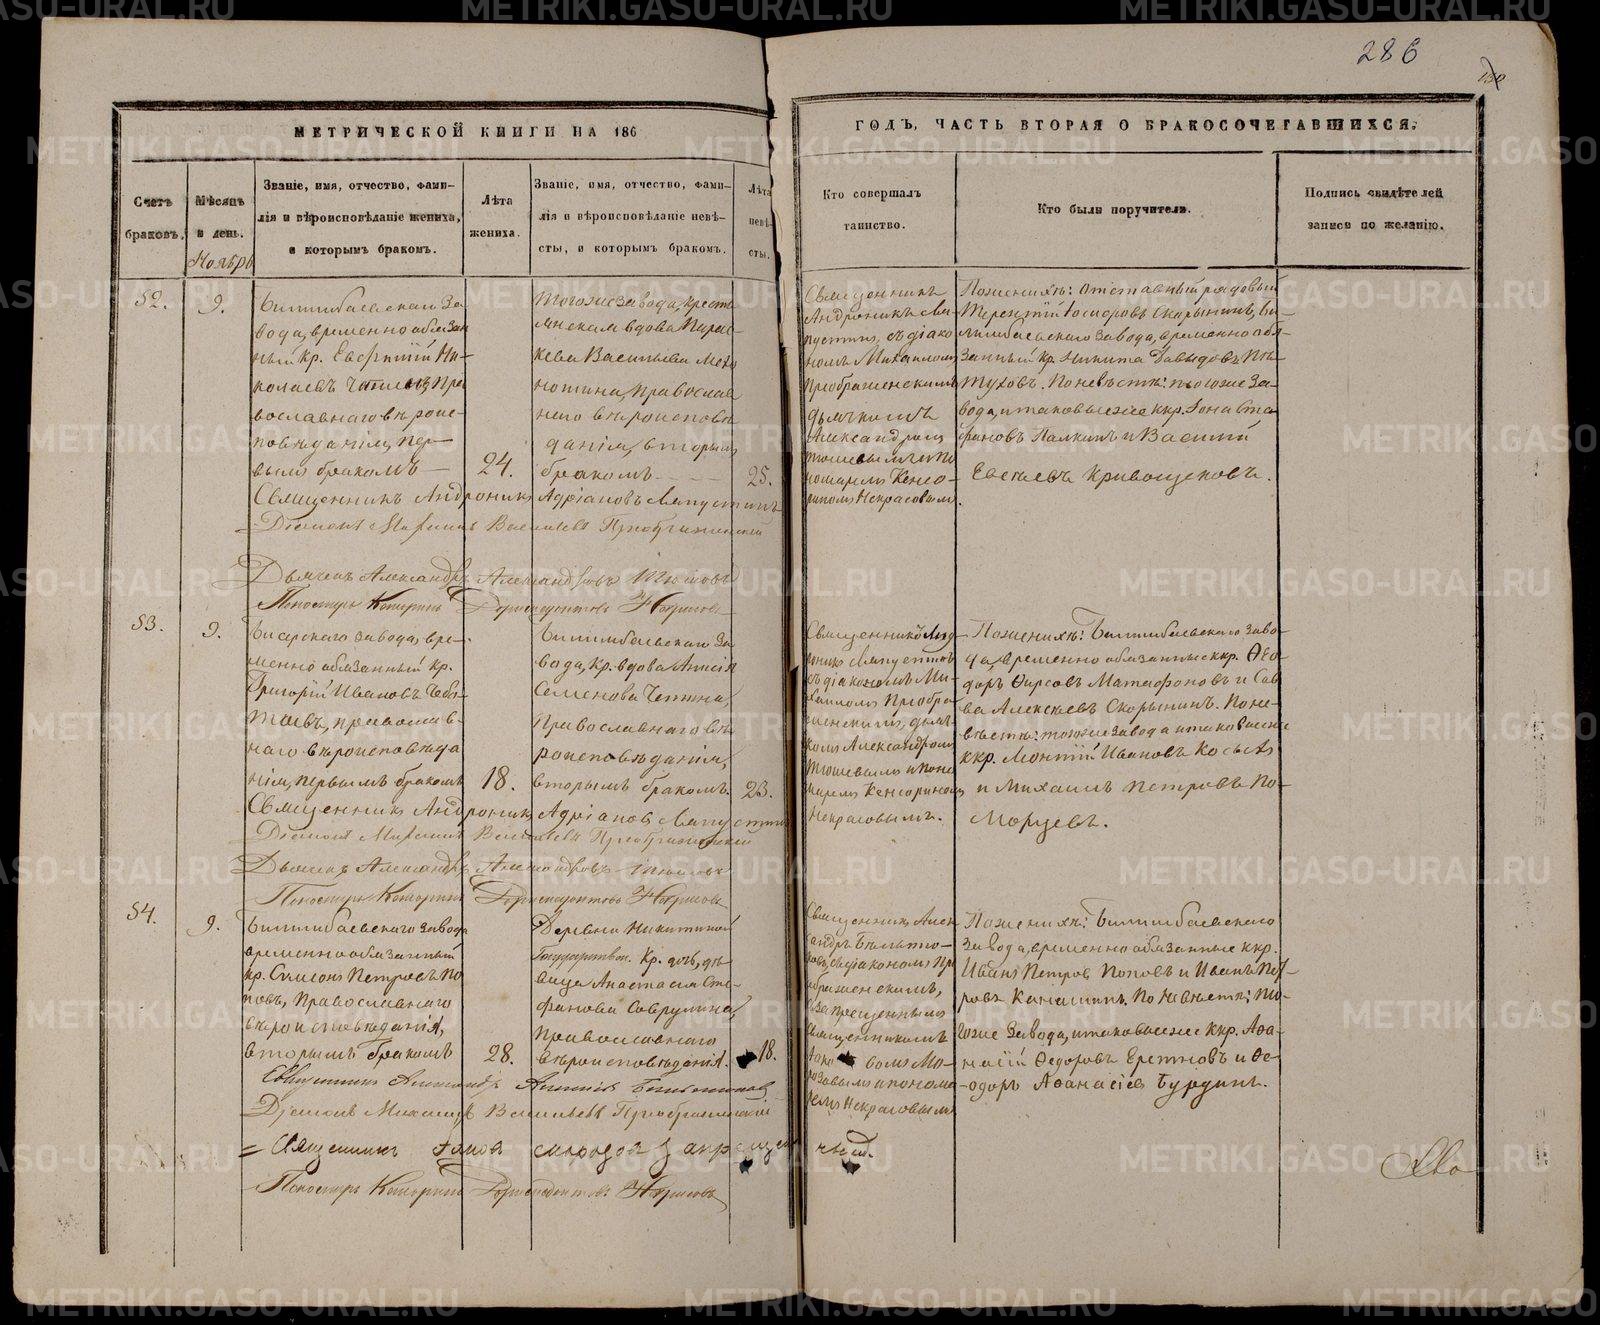 286
МЕТРИЧЕСКОЙ КНИГИ НА 186
ГОДЪ, ЧАСТЬ ВТОРАЯ О БРАКОСОЧЕТАВШИХСЯ.
Счетъ
браковъ.
Мѣсяцъ
и день.
Ноябрь
Званіе, имя, отчество, фами-
лія и вѣроисповѣданіе жениха,
и которымъ бракомъ.
Лѣта
жениха.
Званіе, имя, отчество, фами-
лія и вѣроисповѣданіе невѣ-
сты, и которымъ бракомъ.
Лѣта
невѣ-
сты.
Кто совершалъ
таинство.
Кто были поручители.
Подпись свидѣтелей
записи по желанію.
52.
9.
Билимбаевскаго за
вода, временно обязан
ный кр. Евѳимій Ни-
колаевъ Пра
вославнаго вѣроис-
повѣданія, пер-
вымъ бракомъ
24.
Того же завода, кресть
янская вдова Парас-
кева Васильева
Православ
наго вѣроисповѣ
данія, вторымъ
бракомъ
25.
Священникъ
Андроникъ Ла-
пустинъ, съ діако
номъ Михаиломъ
Преображенскимъ
дьячкомъ
Александромъ
и по
номаремъ Кенсо-
риномъ Некрасовымъ.
По женихѣ: отставный рядовый
Терентій Іосифовъ Скорынинъ, Би-
лимбаевскаго завода, временно обя-
занный кр. Никита Давыдовъ Пѣ-
туховъ. По невѣстѣ: того же За-
вода, и таковые же ккр. Іона Сте
фановъ Палкинъ и Василій
Евсѣевъ Кривощековъ.
Священникъ Андроникъ Адріановъ Лапустинъ
Діаконъ Михаилъ Васильевъ Преображенскій
Дьячекъ Александръ Александровъ
Пономарь Кенсоринъ Некрасовъ
53.
9.
Бисерскаго завода, вре-
менно обязанный кр.
Григорій Ивановъ
православ-
наго вѣроисповѣда
нія, первымъ бракомъ
18.
Билимбаевскаго За
вода, кр. вдова Анисія
Семенова
Православнаго вѣ
роисповѣданія,
вторымъ бракомъ.
23.
Священникъ Анд
роникъ Лапустинъ
съ діакономъ Ми-
хаиломъ Преобра-
женскимъ, дьяч-
комъ Александромъ
и поно
маремъ Кенсориномъ
Некрасовымъ.
По женихѣ: Билимбаевскаго заво-
да, временно обязанные ккр. Ѳео-
доръ Ѳирсовъ Матафоновъ и Сав-
ва Алексѣевъ Скорынинъ. По не-
вѣстѣ: того же завода и таковые же
ккр. Монтій Ивановъ Косых
и Михаилъ Петровъ По-
морцевъ.
Священникъ Андроникъ Адріановъ Лапустинъ
Діаконъ Михаилъ Васильевъ Преображенскій
Дьячекъ Александръ Александровъ
Пономарь Кенсоринъ Некрасовъ
54.
9.
Билимбаевскаго завода
временно обязанный
кр. Симеонъ Петровъ По
повъ, Православнаго
вѣроисповѣданія,
вторымъ бракомъ
28.
Деревни Никитиной
Государствен. Кр. дочь, дѣ-
вица Анастасія Сте-
фанова Саврулина,
Православнаго
вѣроисповѣданія.
18.
Священникъ Алек
сандръ
съ діакономъ Пре
ображенскимъ,
запрещеннымъ
священникомъ
Мо-
розовымъ и понома
ремъ Некрасовымъ
По женихѣ: Билимбаевскаго
завода, временно обязанные ккр.
Иванъ Петровъ Поповъ и Иванъ Пет-
ровъ Канашинъ. По невѣстѣ: то-
гоже завода, и таковые же ккр. Аѳа-
насій Ѳедоровъ Еретновъ и Ѳе-
одоръ Аѳанасіевъ Бурдинъ.
Священникъ Александръ
Діаконъ Михаилъ Васильевъ Преображенскій
Священникъ запрещен
Пономарь Кенсоринъ Некрасовъ
METRIKI.GASO-URAL.RU